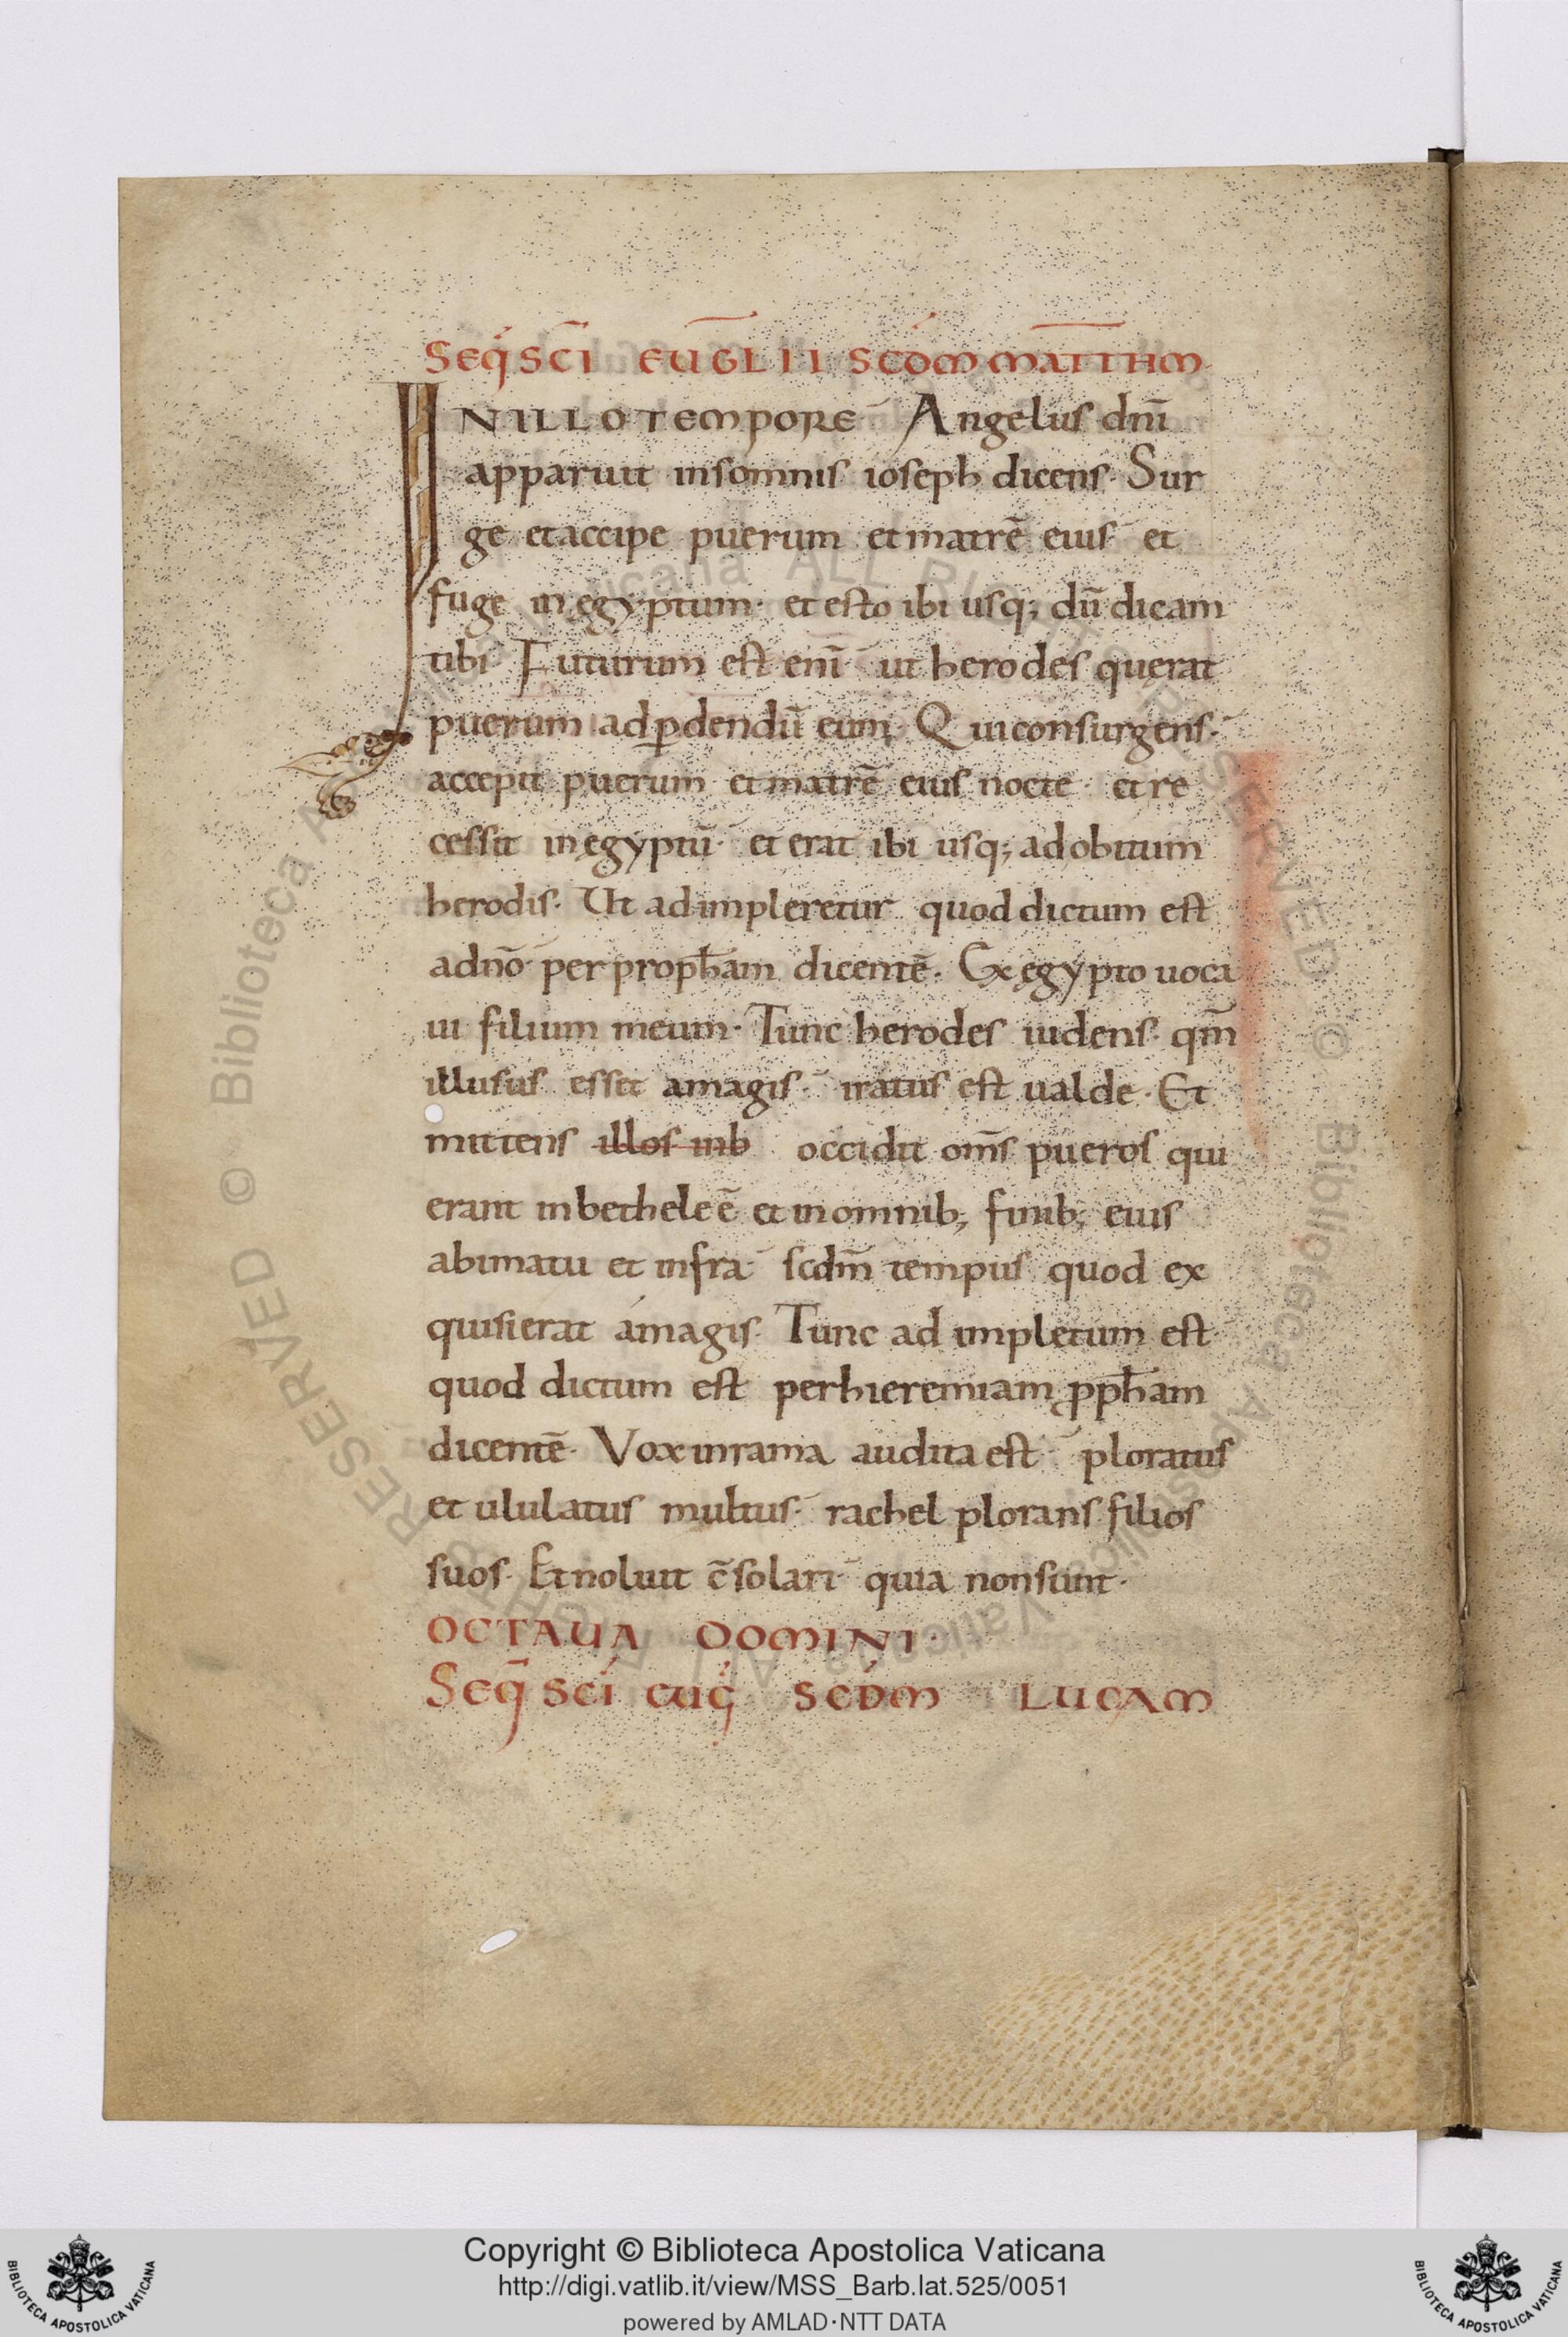 Seq̄ SC̄I EŪGLII SCD̄M MATTH̄M
INILLO TEMPORE Angelus dn̄i
apparuit insomnis ioseph dicens· Sur
ge et accipe puerum et matrē eius et
fuge in ęgyptum· et esto ibi usq; dū dicam
tibi· Futurum est eni̅ ut herodes querat
puerum ad ꝑdendū eum· Qui consurgens·
accepit puerum et matrē eius nocte· et re
cessit in ęgyptū· et erat ibi usq; ad obitum
herodis· Ut adimpleretur quod dictum est
a dn̄o per proph̄am dicentē· Ex ęgypto uoca
ui filium meum· Tunc herodes uidens· qm̄
illusus esset a magis· iratus est ualde· Et
mittens illos inb occidit om̄s pueros qui
erant in betheleē et in omnib; finib; eius
a bimatu et infra· scdm̄ tempus quod ex
quisierat a magis· Tunc ad impletum est
quod dictum est per hieremiam ꝓph̄am
dicentē· Vox in rama audita est· ploratus
et ululatus multus· rachel plorans filios
suos· Et noluit c̄solari· quia non sunt·
OCTAUA DOMINI·
Seq̄ SC̄I euḡ SCD̄M LUCAM
© Biblioteca Apostolica Vaticana ALL RIGHTS RESERVED © Biblioteca Apostolica Vaticana ALL RIGHTS RESERVED
Copyright © Biblioteca Apostolica Vaticana
http://digi.vatlib.it/view/MSS_Barb.lat.525/0051
powered by AMLAD·NTT DATA
BIBLIOTECA APOSTOLICA VATICANA
BIBLIOTECA APOSTOLICA VATICANA